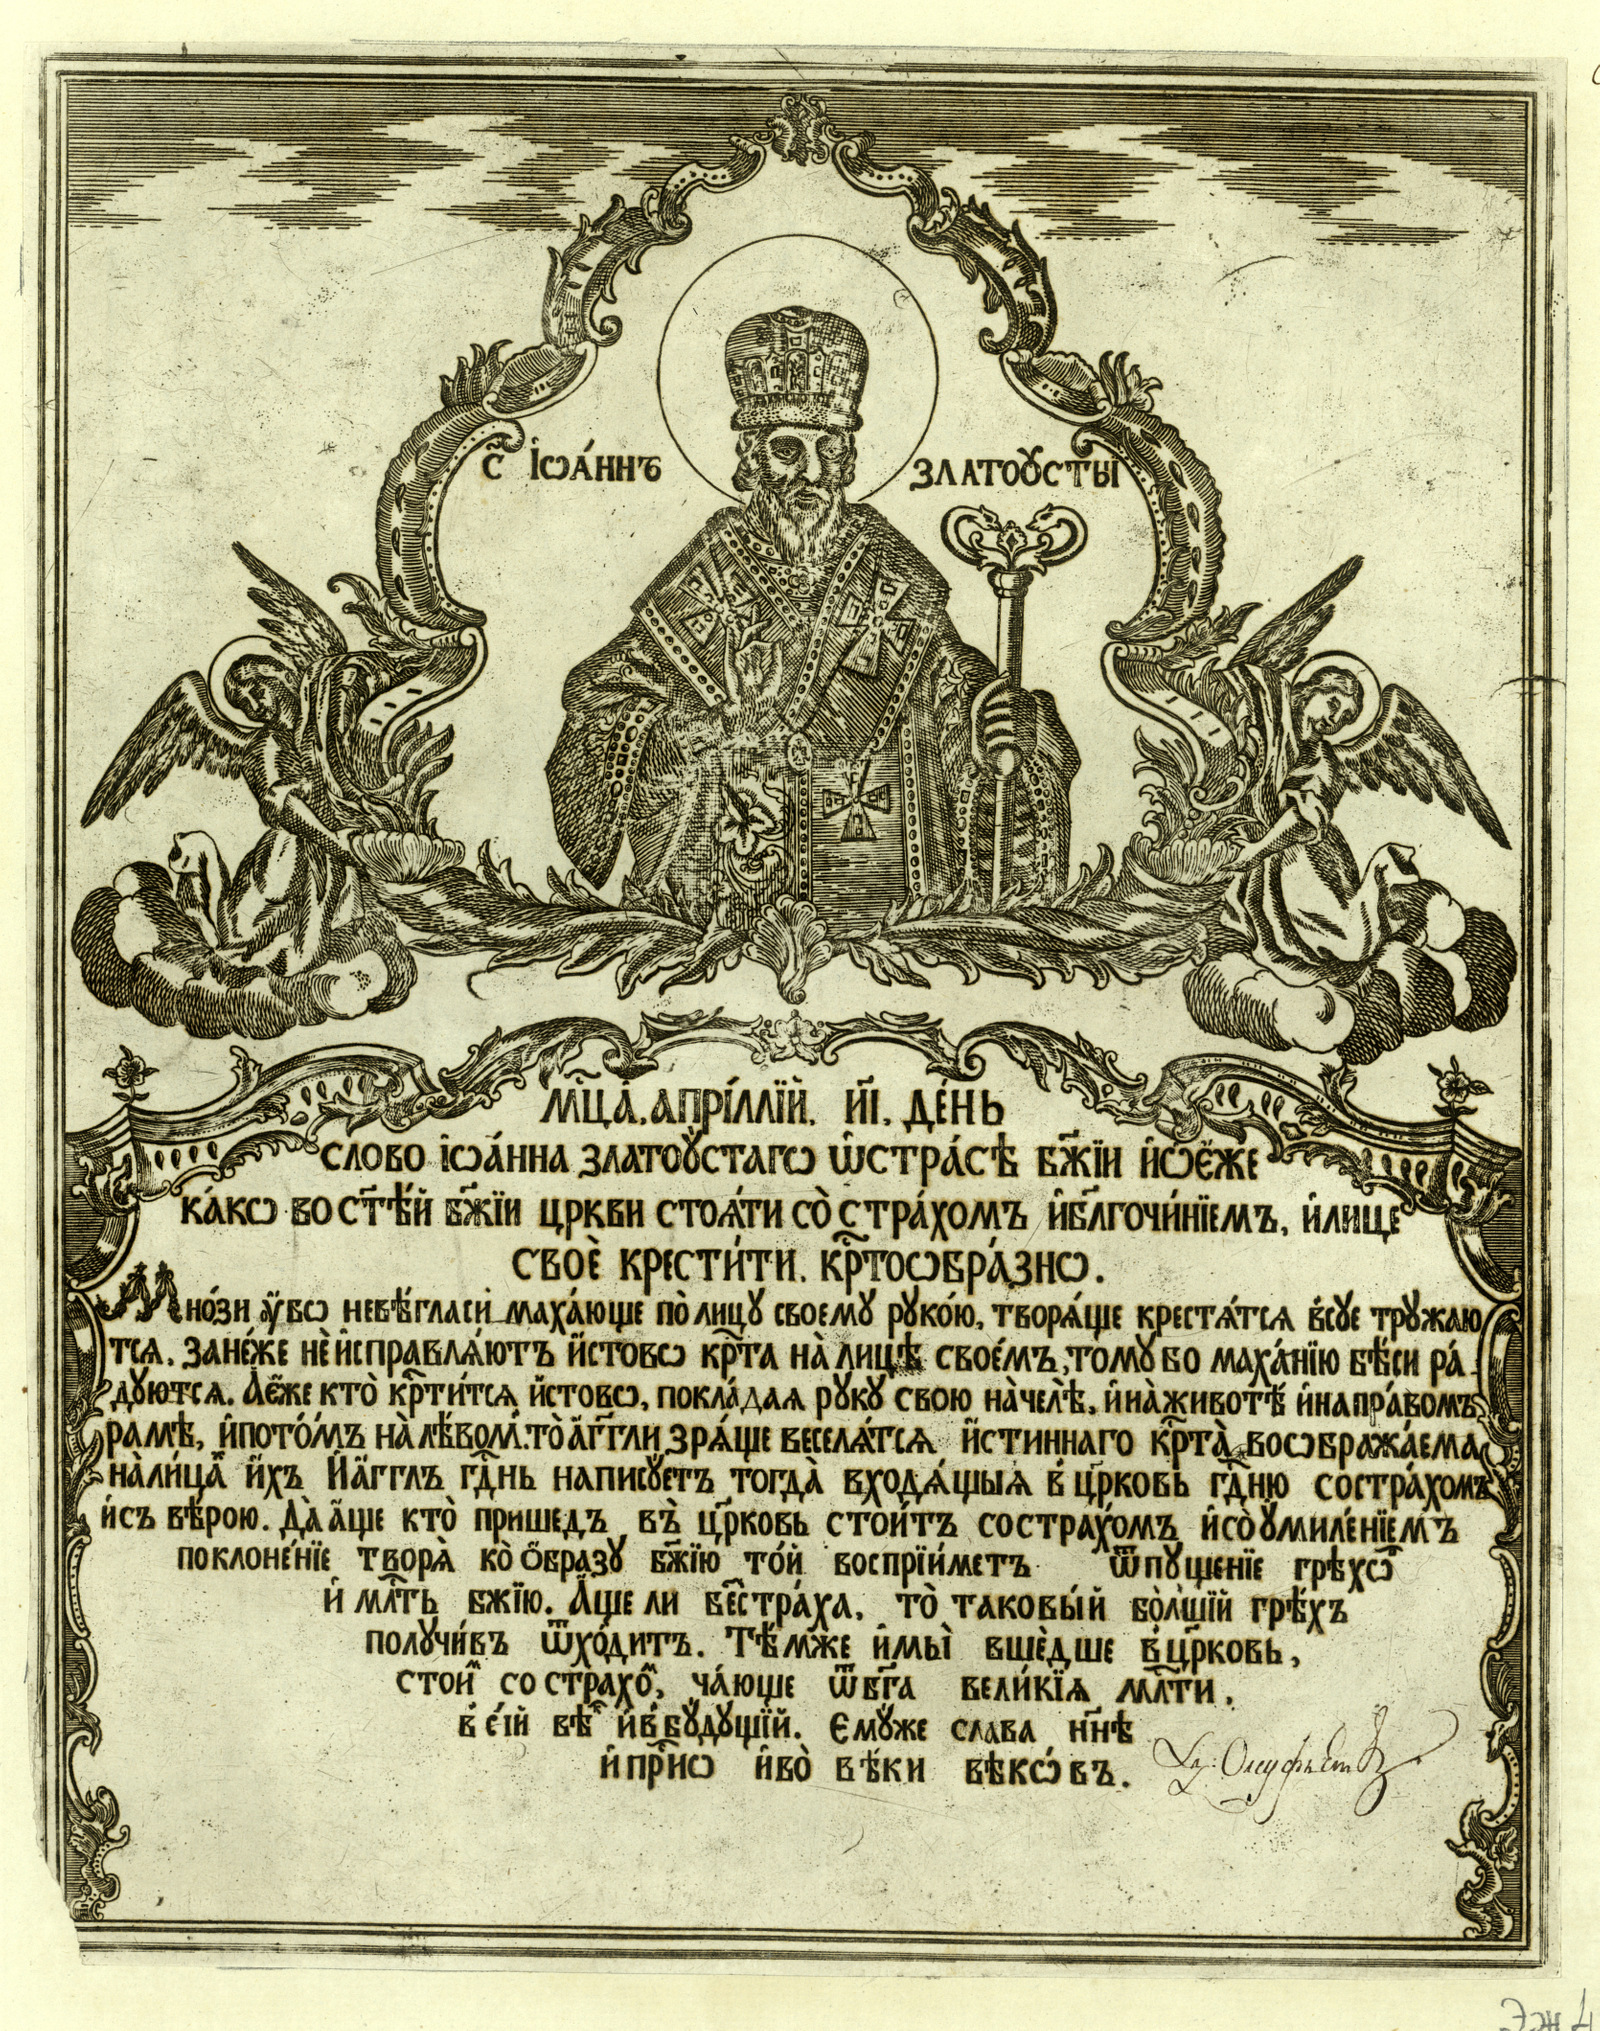 С҃ І҆ѡа́ннъ ЗЛАТОꙋ́СТЫ
Мц҃а. а҆прі́ллїй. и҃і. де́нь
СЛОВО І҆ѡа́нна ЗЛАТОꙋ́СТАГѠ ѡ҆стра́сѣ бж҃їи и҆ѡє҆́же
ка́кѡ во ст҃ѣ́й бж҃їи цр҃кви стоѧ́ти со̀ стра́хомъ и҆бл҃гочи́нїемъ, и҆лице
своѐ крести́ти. кр҃тоѡбра́знѡ.
Мно́зи ᲂу҆́бѡ невѣ́гласи маха́юще по̀ лицу своему руко́ю, творѧ́ще крестѧ́тсѧ в҆сꙋе тружаю
тсѧ. зане́же нѐ и҆справлѧ́ютъ и҆́стовѡ кр҃та на̀ лицѣ своє́мъ, тому бо маха́нїю бѣ́си ра́
дуютсѧ. А҆є҆́же кто̀ кр҃ти́тсѧ и҆́стовѡ, покла́даѧ руку свою на̀челѣ̀, и҆на̀животѣ́ и҆напра́вомъ
рамѣ, и҆пото́мъ на̀лѣ́вом. то̀ а҆́гг҃ли зрѧ́ще веселѧ́тсѧ и҆́стиннаго кр҃та̀ воѡбража́ема
на̀ли́ца и҆́хъ И҆а҆́гг҃лъ гд҃нь написꙋетъ тогда̀ входѧ́щыѧ в҆ цр҃ковь гд҃ню состра́хомъ
и҆съ вѣ́рою. Да̀ а҆́ще кто̀ пришедъ въ̀ цр҃ковь стои́тъ состра́хомъ и҆со̀ умиле́нїемъ
поклоне́нїе творѧ̀ ко̀ о҆́бразу бж҃їю то́й воспрїи́метъ ѿпущенїе грѣхѡ
и҆ мл҃ть бж҃їю. А҆́ще ли бе́стра́ха, то̀ таковы́й бо̀лшїй грѣ́хъ
получи́въ ѿхо́дитъ. Тѣ́мже и҆мы̀ вшѐдше в҆ цр҃ковь,
стои со страхо, ча́юще ѿбг҃а вели́кїѧ мл҃ти,
в҆ сі́й вѣ и҆в҆ бꙋдущїй. Є҆мꙋже слава нн҃ѣ
и҆ пр҃нѡ и҆во̀ вѣ́ки вѣкѡ́въ.
Эж 4